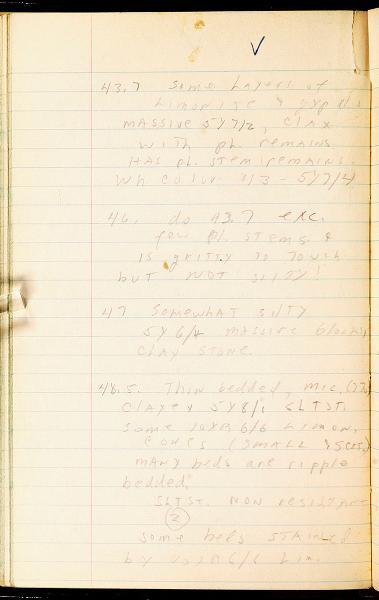 ✓
43.7 Some layers of
Limonite & gyp
MASSIVE 5Y7/2, CLAY
with pl. remains
HAS pl. stem remains.
Wh color - 5Y7/4
46. do 43.7 exc.
few pl. stems &
IS gritty to touch
but NOT silty!
47 Somewhat silty
5Y6/4 massive blocky
clay stone.
48.5. Thin bedded, mic.
clayey 5Y8/1 SLTST.
Some 10YR6/6 Limon.
CONCS (SMALL
MANY beds are ripple
bedded.
SLTST. NON resistant
2
Some beds STAINED
by 10YR6/6 Lim.